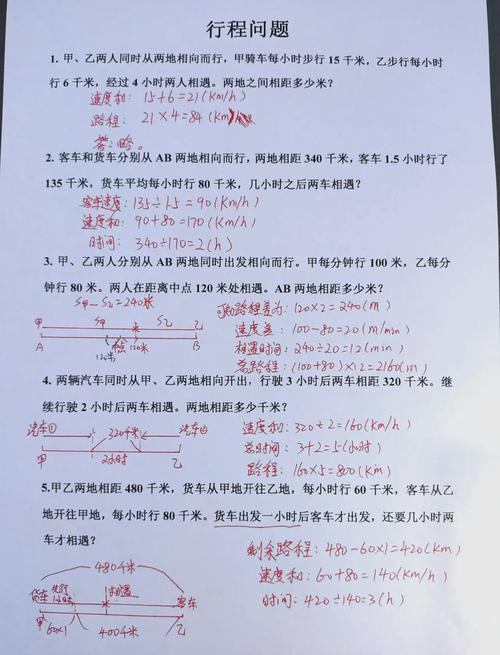 行程问题
1. 甲、乙两人同时从两地相向而行，甲骑车每小时步行 15 千米，乙步行每小时
行 6 千米，经过 4 小时两人相遇。两地之间相距多少米？
速度和: 15+6=21(Km/h)
路程: 21×4=84(Km)
答: 略。
2. 客车和货车分别从 AB 两地相向而行，两地相距 340 千米，客车 1.5 小时行了
135 千米，货车平均每小时行 80 千米，几小时之后两车相遇？
客车速度: 135÷1.5=90(Km/h)
速度和: 90+80=170(Km/h)
时间: 340÷170=2(h)
3. 甲、乙两人分别从 AB 两地同时出发相向而行。甲每分钟行 100 米，乙每分
钟行 80 米。两人在距离中点 120 米处相遇。AB 两地相距多少米？
S甲-S乙=240米
路程差为: 120×2=240(m)
甲 S甲 S乙 乙
速度差: 100-80=20(m/min)
A 120米 B
相遇时间: 240÷20=12(min)
总路程: (100+80)×12=2160(m)
4. 两辆汽车同时从甲、乙两地相向开出，行驶 3 小时后两车相距 320 千米。继
续行驶 2 小时后两车相遇。两地相距多少千米？
汽车① 320千米 汽车②
速度和: 320÷2=160(Km/h)
总时间: 3+2=5(小时)
甲 2小时 乙
路程: 160×5=800(Km)
5.甲乙两地相距 480 千米，货车从甲地开往乙地，每小时行 60 千米，客车从乙
地开往甲地，每小时行 80 千米。货车出发一小时后客车才出发，还要几小时两
车才相遇？
剩余路程: 480-60×1=420(Km)
480千米
速度和: 60+80=140(Km/h)
货车 先行1小时 相遇 客车
时间: 420÷140=3(h)
甲 60×1 乙